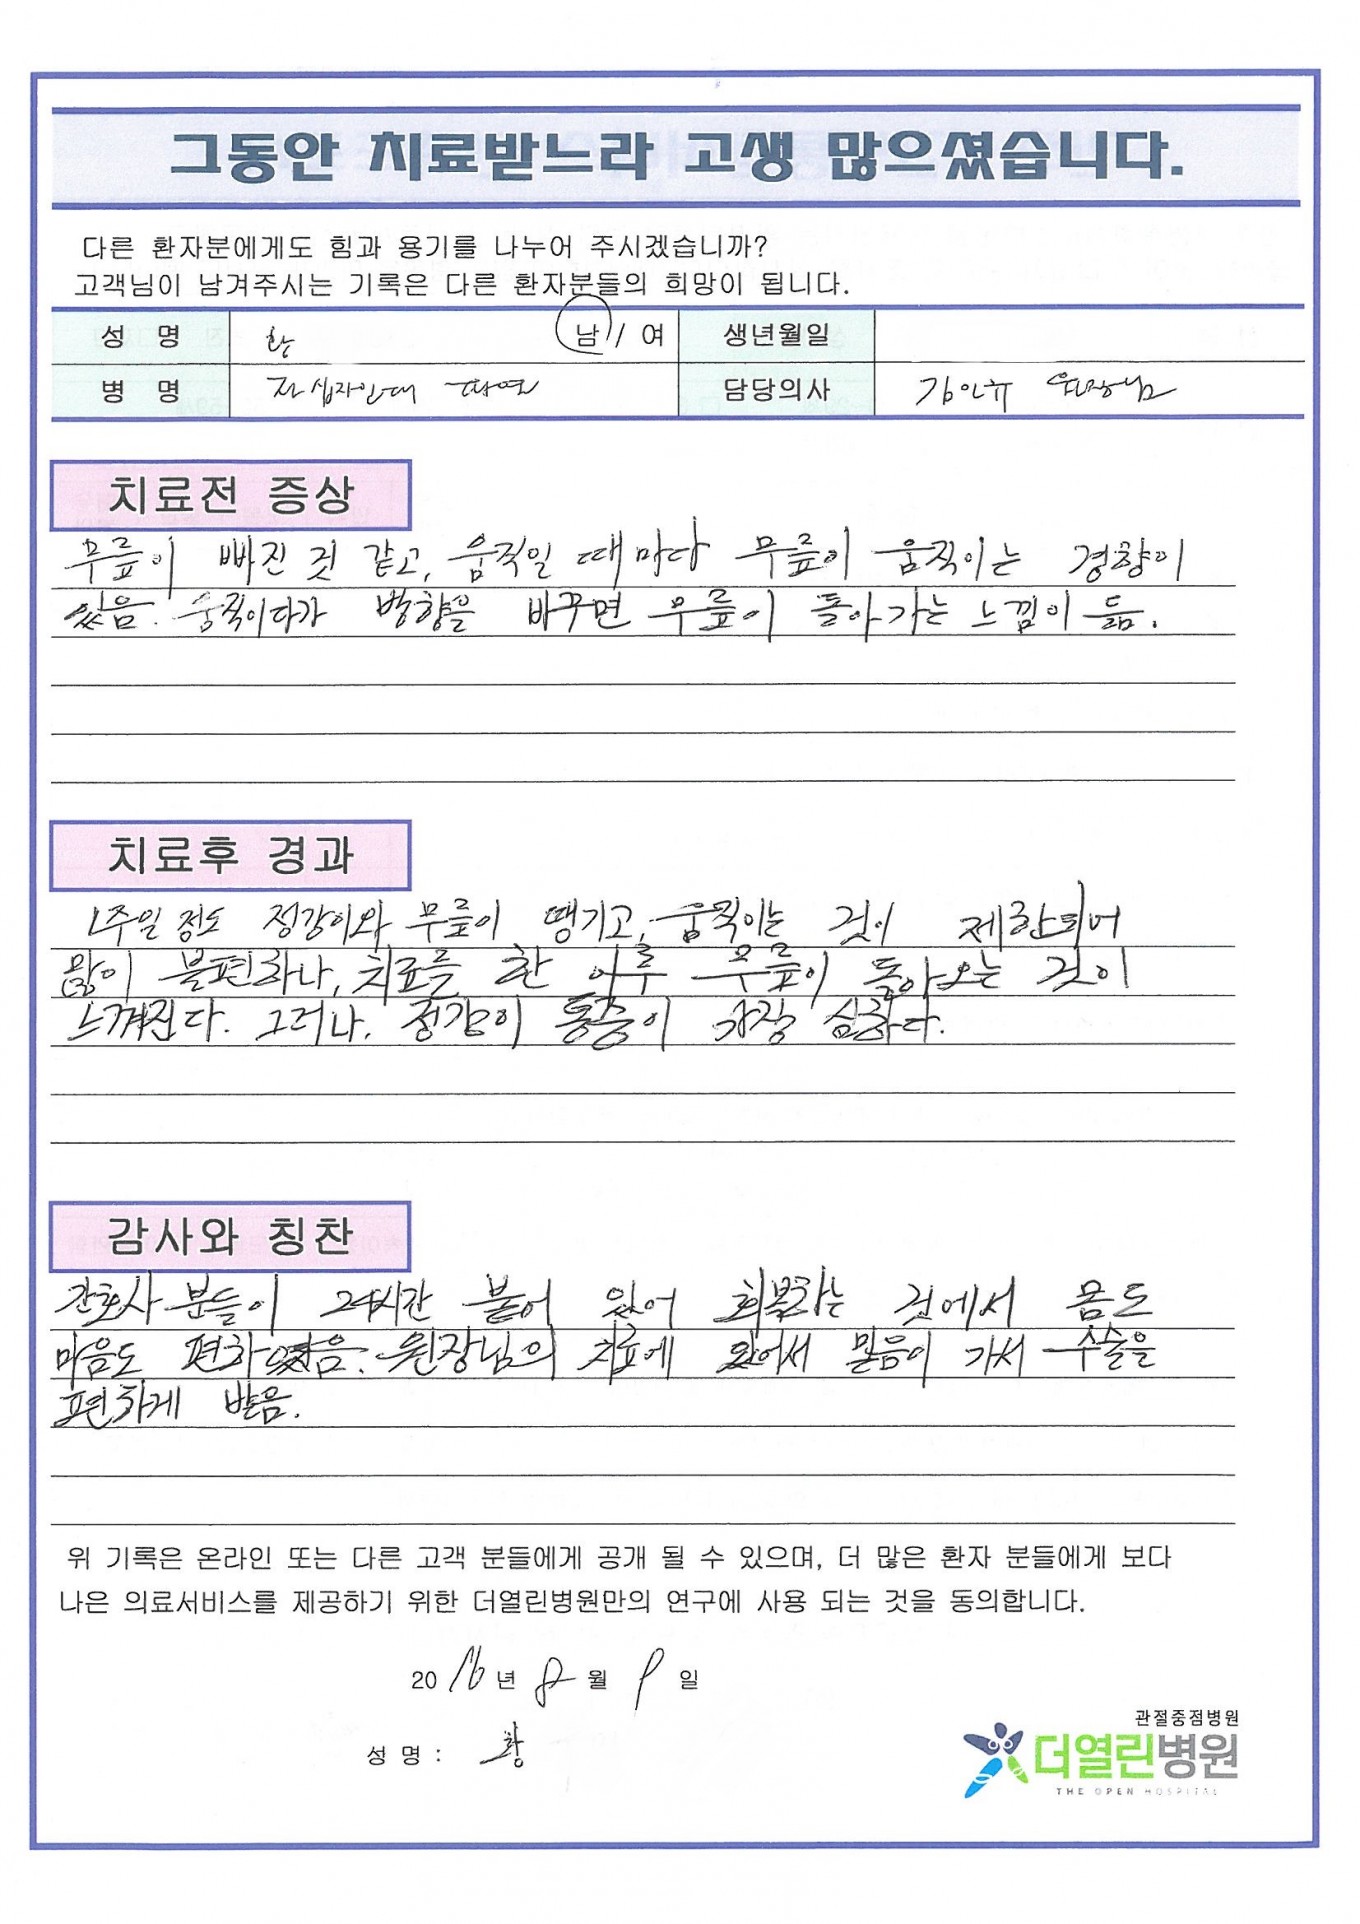 그동안 치료받느라 고생 많으셨습니다.
다른 환자분에게도 힘과 용기를 나누어 주시겠습니까?
고객님이 남겨주시는 기록은 다른 환자분들의 희망이 됩니다.
성 명 황 남 / 여 생년월일
병 명 전십자인대 파열 담당의사 김인규 원장님
치료전 증상
무릎이 빠진 것 같고, 움직일 때마다 무릎이 움직이는 경향이
있음. 움직이다가 방향을 바꾸면 무릎이 돌아가는 느낌이 듦.
치료후 경과
1주일 정도 정강이와 무릎이 땡기고, 움직이는 것이 제한되어
많이 불편하나, 치료를 한 이후 무릎이 돌아오는 것이
느껴진다. 그러나, 정강이 통증이 가장 심하다.
감사와 칭찬
간호사 분들이 24시간 붙어 있어 회복하는 것에서 몸도
마음도 편하였음. 원장님의 치료에 있어서 믿음이 가서 수술을
편하게 받음.
위 기록은 온라인 또는 다른 고객 분들에게 공개 될 수 있으며, 더 많은 환자 분들에게 보다
나은 의료서비스를 제공하기 위한 더열린병원만의 연구에 사용 되는 것을 동의합니다.
2016년 8월 9일
성 명 : 황
관절중점병원
더열린병원
THE OPEN HOSPITAL